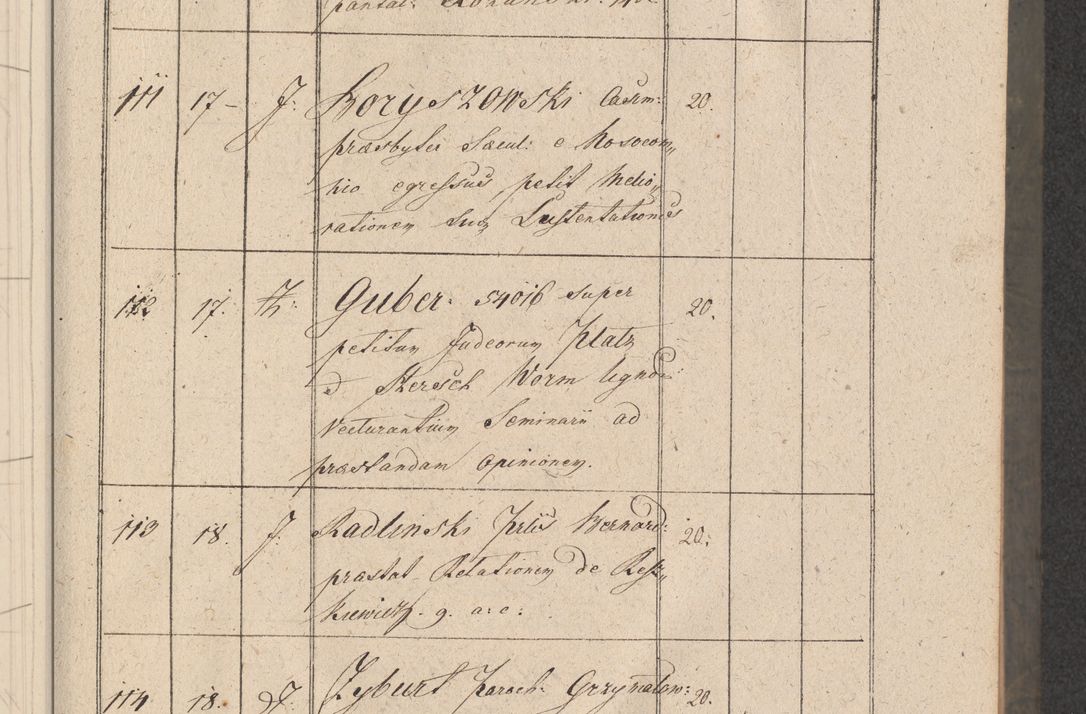 111 17 J. Boryszowski Casim: 20.
præsbyter Sæcul: e Nosocom„
nio egressus, petit Melio„
rationem suæ Sustentationis
112 17. Guber. 54016 super 20.
petitum Judeorum Platz
et Hersch Worm ligno
vecturantium Seminarii ad
præstandam opinionem.
113 18. J. Radlinski Bernard: 20.
præstat Relationem de Resz„
kiewicz. g. a: c:
114 18. J. Zyburt Paroch: Grzymalow: 20.